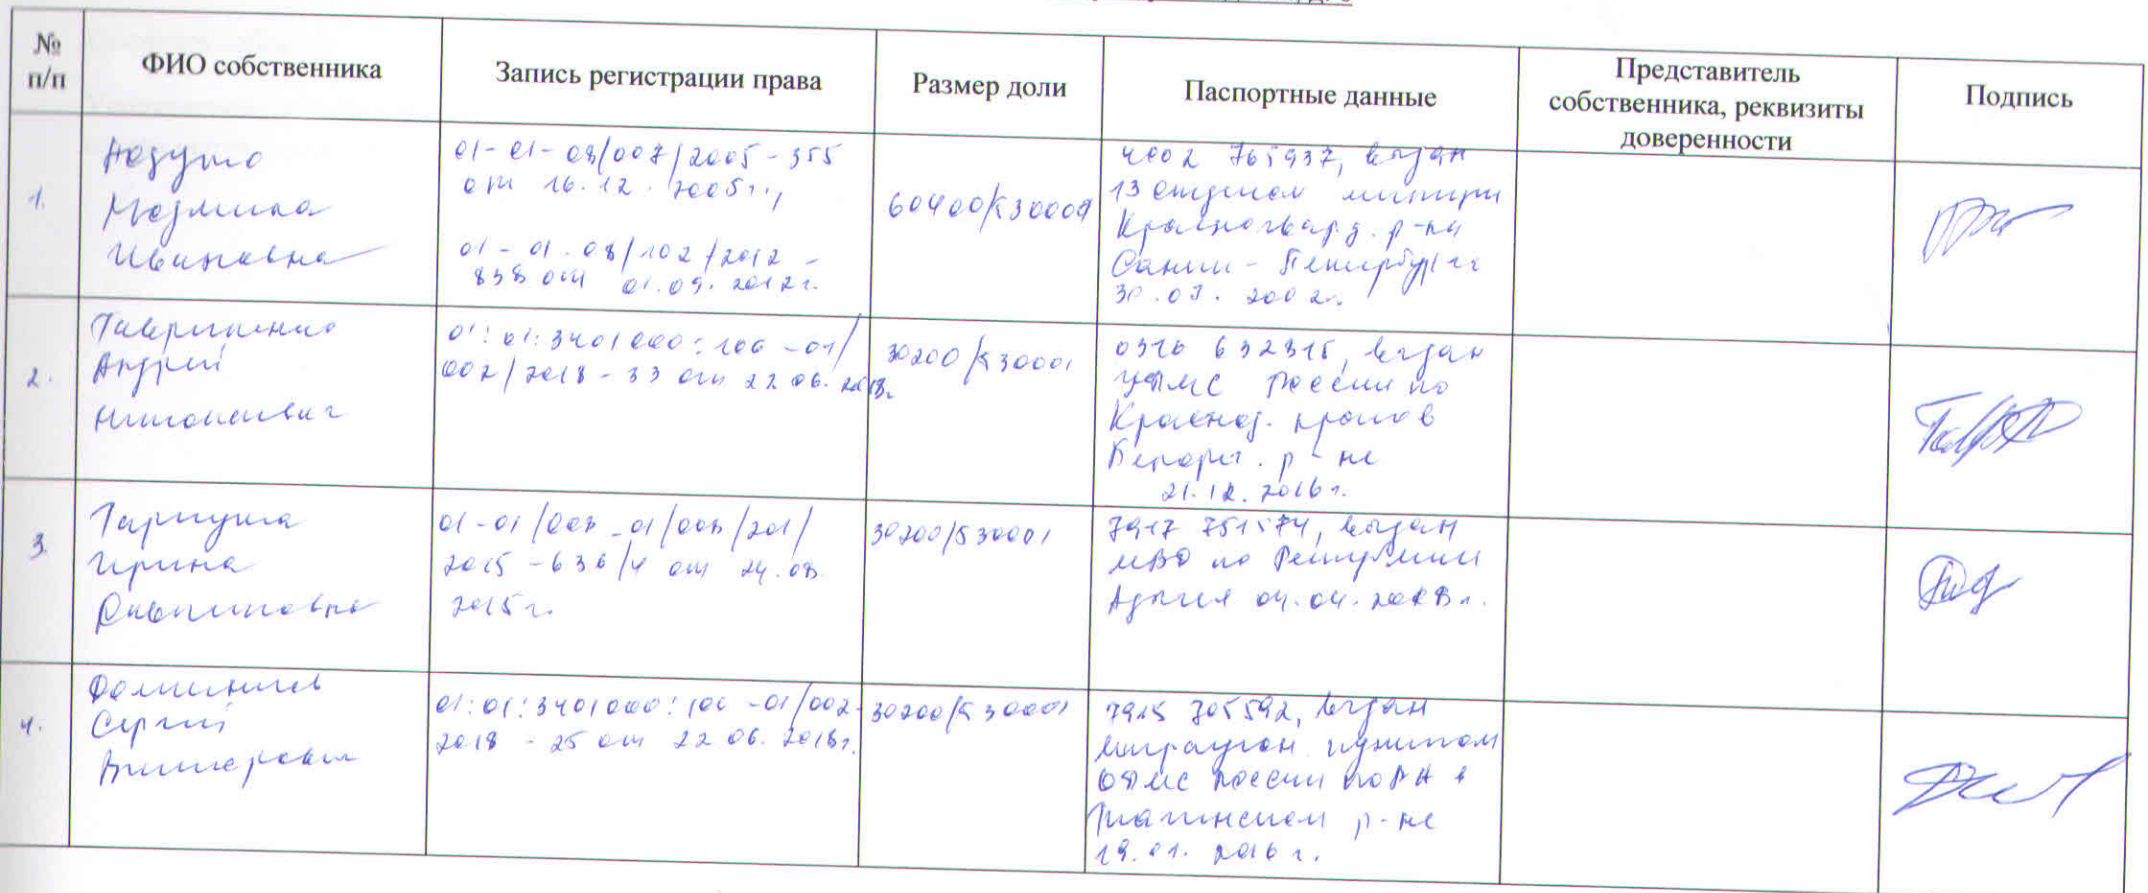 № п/п
ФИО собственника
Запись регистрации права
Размер доли
Паспортные данные
Представитель собственника, реквизиты доверенности
Подпись
1.
Людмила
Ивановна
01-01-08/007/2005-355
от 16.12.2005г.,
01-01-08/102/2012-
838 от 01.09.2012г.
60400/530001
4002 765937, выдан
13 отделом милиции
Красногвард. р-на
Санкт-Петербурга
30.03.2002г.
2.
Гавриленко
Андрей
01:01:3401000:100-01/
002/2018-33 от 22.06.2018г.
30200/530001
0316 632315, выдан
УФМС России по
Краснод. краю в
р-не
21.12.2016г.
3.
Ирина
01-01/008-01/008/201/
2015-636/4 от 24.08.
2015г.
30200/530001
7917 751574, выдан
МВД по Республике
Адыгея 04.04.2018г.
4.
Сергей
Викторович
01:01:3401000:100-01/002-
2018-25 от 22.06.2018г.
30200/530001
7915 705592, выдан
пунктом
ОФМС России по РА в
р-не
19.01.2016г.